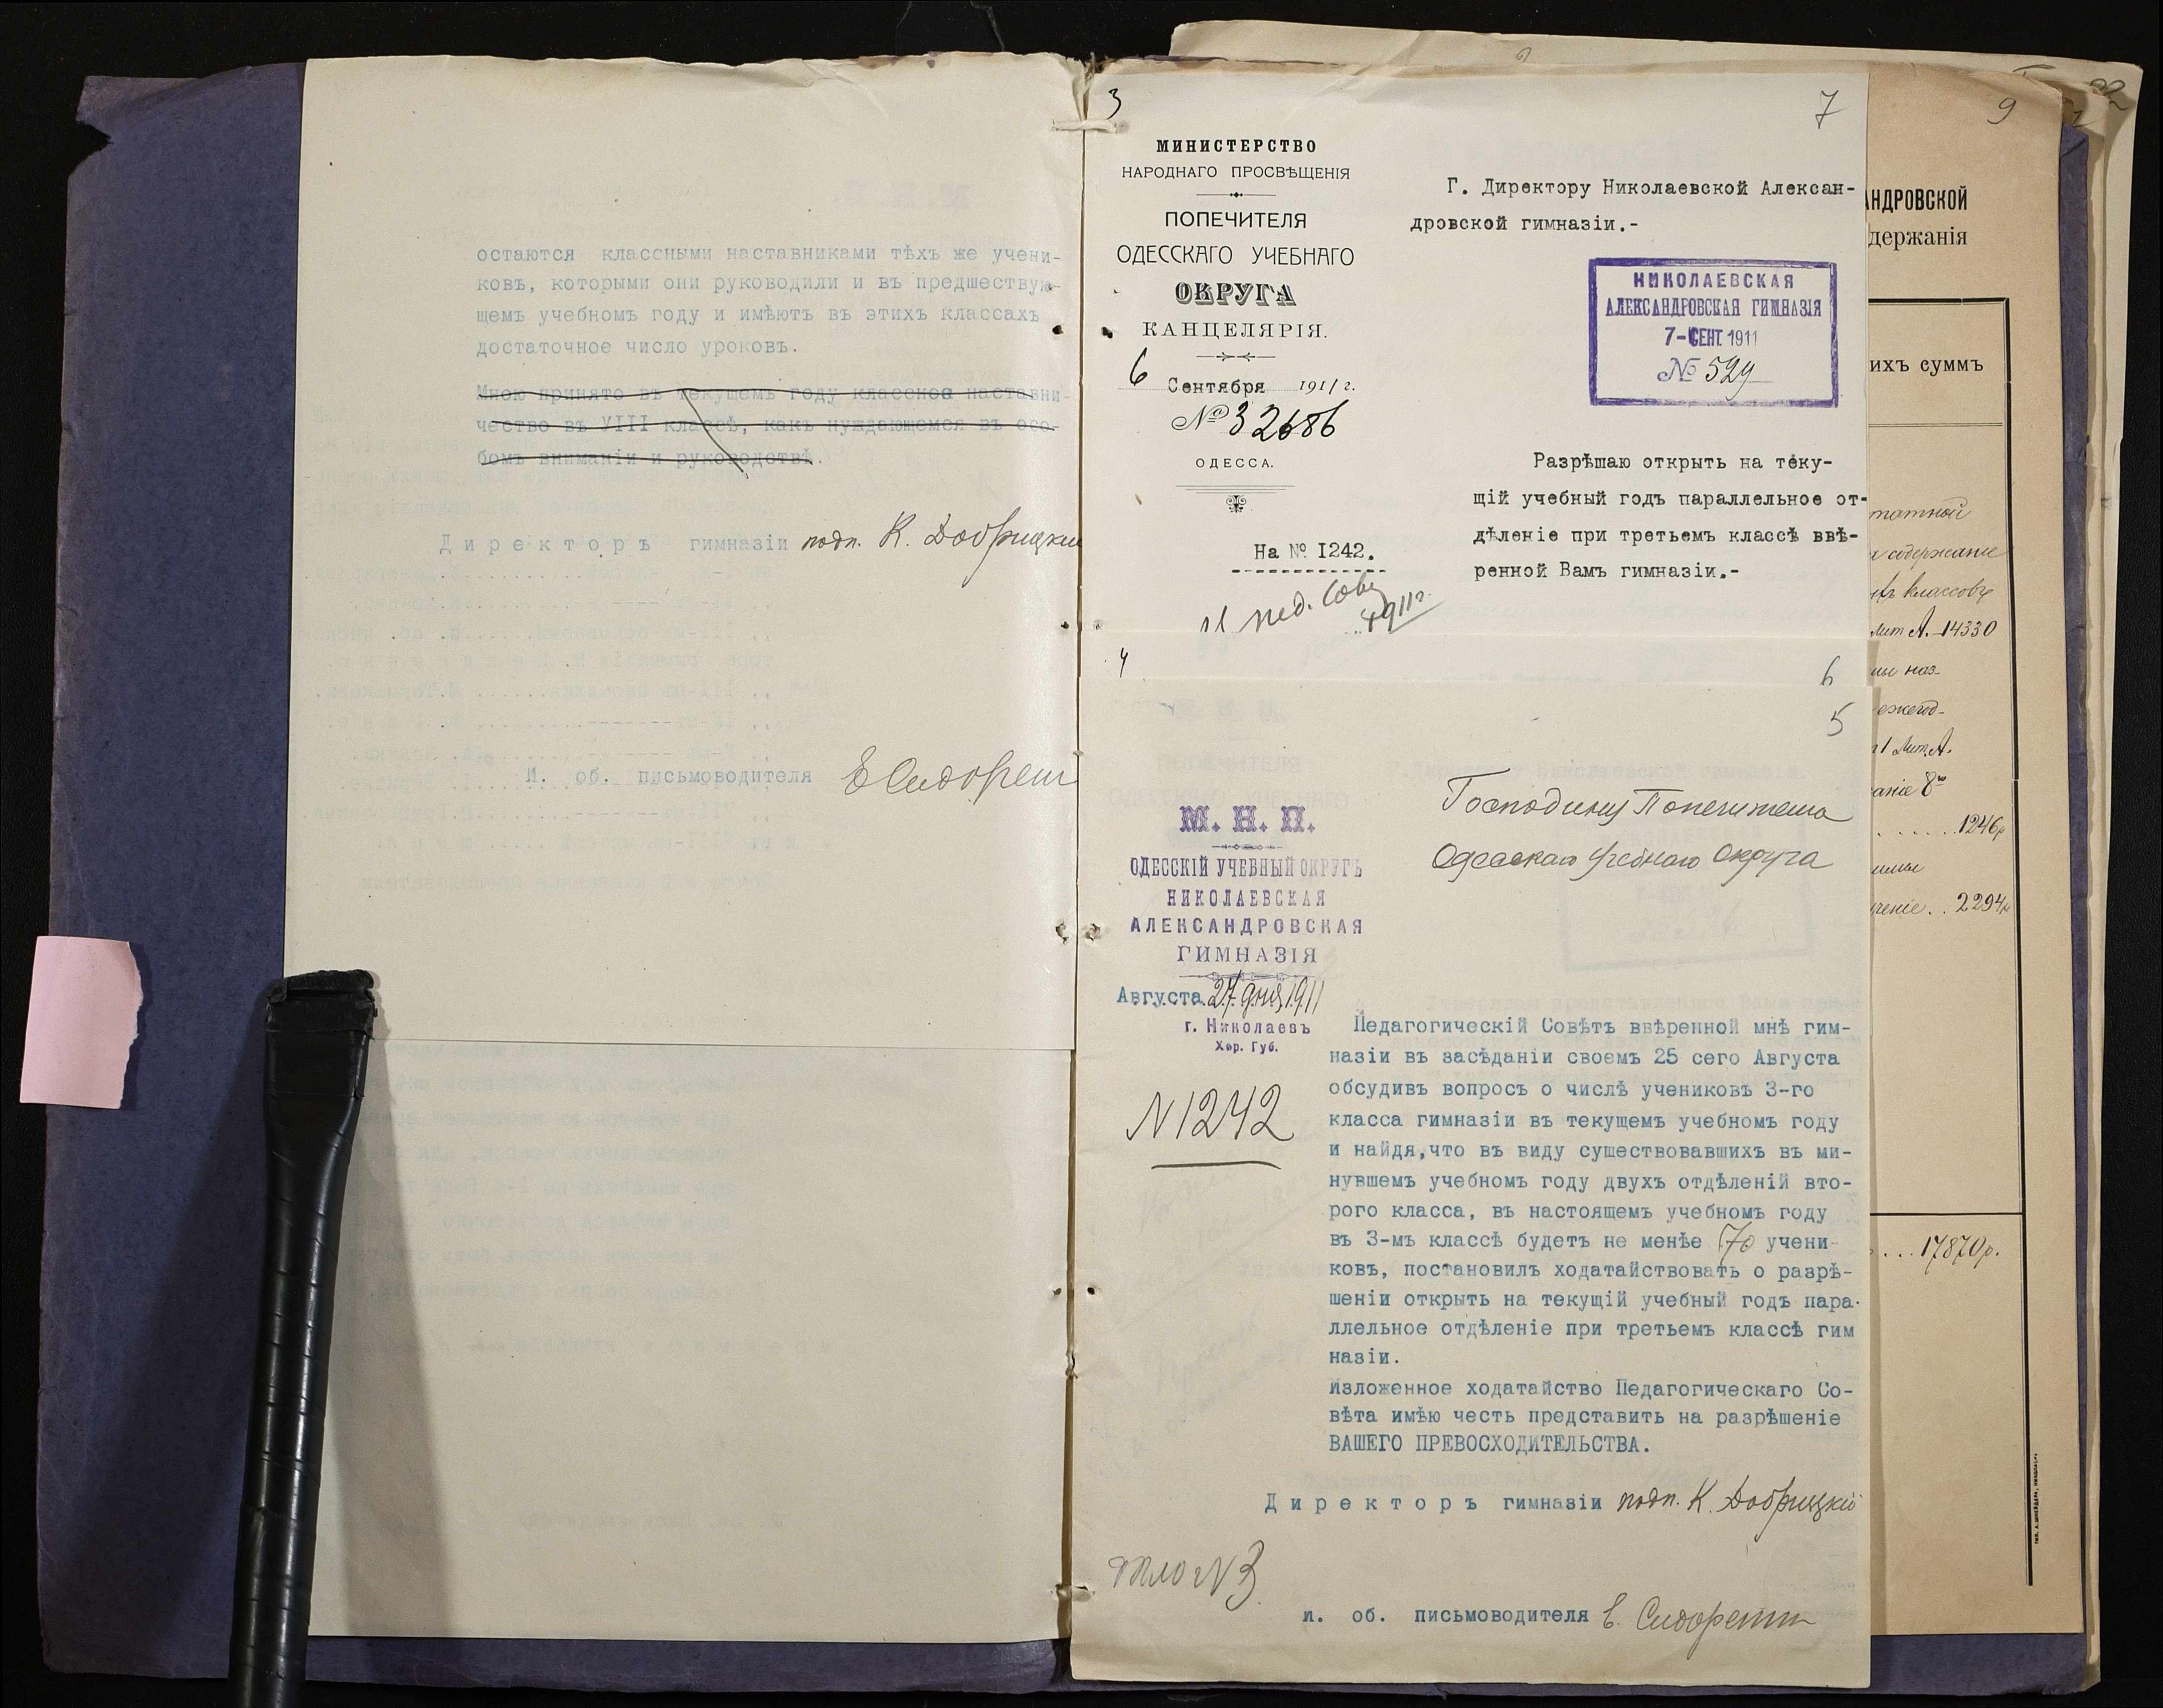 остаются классными наставниками тѣхъ же учени-
ковъ, которыми они руководили и въ предшествую-
щемъ учебномъ году и имѣютъ въ этихъ классахъ
достаточное число уроковъ.
Мною принято въ текущемъ году классное наставни-
чество въ VIII классѣ, какъ нуждающемся въ осо-
бомъ вниманіи и руководствѣ.
Директоръ гимназіи подп. К. Добрицкій
И. об. письмоводителя
3
7
МИНИСТЕРСТВО
НАРОДНАГО ПРОСВѢЩЕНІЯ
ПОПЕЧИТЕЛЯ
ОДЕССКАГО УЧЕБНАГО
ОКРУГА
КАНЦЕЛЯРІЯ.
6 Сентября 1911 г.
№ 32686
ОДЕССА.
На № I242.
Г. Директору Николаевской Алексан-
дровской гимназіи.-
НИКОЛАЕВСКАЯ
АЛЕКСАНДРОВСКАЯ ГИМНАЗІЯ
7-СЕНТ 1911
№ 529
Разрѣшаю открыть на теку-
щій учебный годъ параллельное от-
дѣленіе при третьемъ классѣ ввѣ-
ренной Вамъ гимназіи.-
4
6
5
М. Н. П.
ОДЕССКІЙ УЧЕБНЫЙ ОКРУГЪ
НИКОЛАЕВСКАЯ
АЛЕКСАНДРОВСКАЯ
ГИМНАЗІЯ
Августа 27 дня 1911
г. Николаевъ
Хер. Губ.
N 1242
Господину Попечителю
Одесскаго Учебнаго Округа
Педагогическій Совѣтъ ввѣренной мнѣ гим-
назіи въ засѣданіи своемъ 25 сего Августа
обсудивъ вопросъ о числѣ учениковъ 3-го
класса гимназіи въ текущемъ учебномъ году
и найдя,что въ виду существовавшихъ въ ми-
нувшемъ учебномъ году двухъ отдѣленій вто-
рого класса, въ настоящемъ учебномъ году
въ 3-мъ классѣ будетъ не менѣе 70 учени-
ковъ, постановилъ ходатайствовать о разрѣ-
шеніи открыть на текущій учебный годъ пара-
ллельное отдѣленіе при третьемъ классѣ гим
назіи.
Изложенное ходатайство Педагогическаго Со-
вѣта имѣю честь представить на разрѣшеніе
ВАШЕГО ПРЕВОСХОДИТЕЛЬСТВА.
Директоръ гимназіи подп. К. Добрицкій
и. об. письмоводителя
9
АНДРОВСКОЙ
держанія
ихъ суммъ
содержаніе
классовъ
Лит А. 14330
ежегод-
Лит. А.
1246р
2294р
17870р.